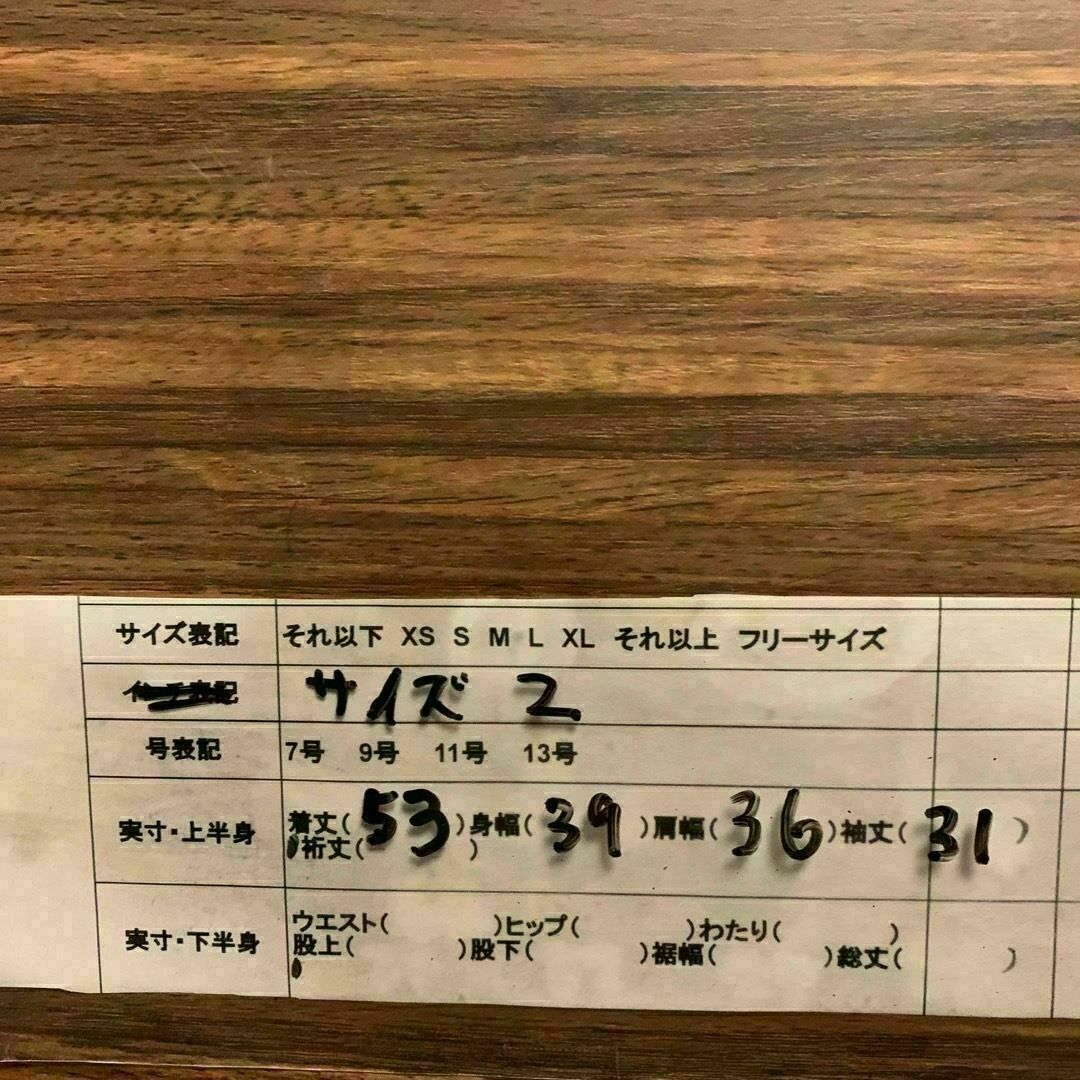 サイズ表記 それ以下 XS S M L XL それ以上 フリーサイズ
サイズ 2
号表記 7号 9号 11号 13号
実寸・上半身 着丈( 53 )身幅( 39 )肩幅( 36 )袖丈( 31 )
裄丈( )
実寸・下半身 ウエスト( )ヒップ( )わたり( )
股上( )股下( )裾幅( )総丈( )